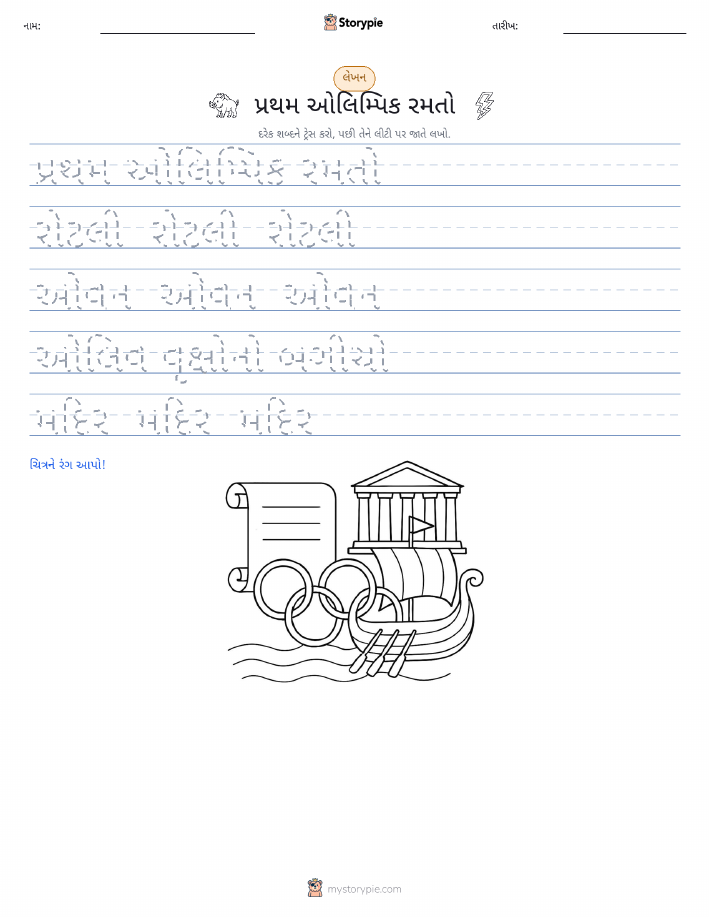 નામ:
Storypie
તારીખ:
લેખન
પ્રથમ ઓલિમ્પિક રમતો
દરેક શબ્દને ટ્રેસ કરો, પછી તેને લીટી પર જાતે લખો.
પ્રથમ ઓલિમ્પિક રમતો
રોટલી રોટલી રોટલી
ઓવન ઓવન ઓવન
ઓલિવ વૃક્ષોનો બગીચો
મંદિર મંદિર મંદિર
ચિત્રને રંગ આપો!
mystorypie.com